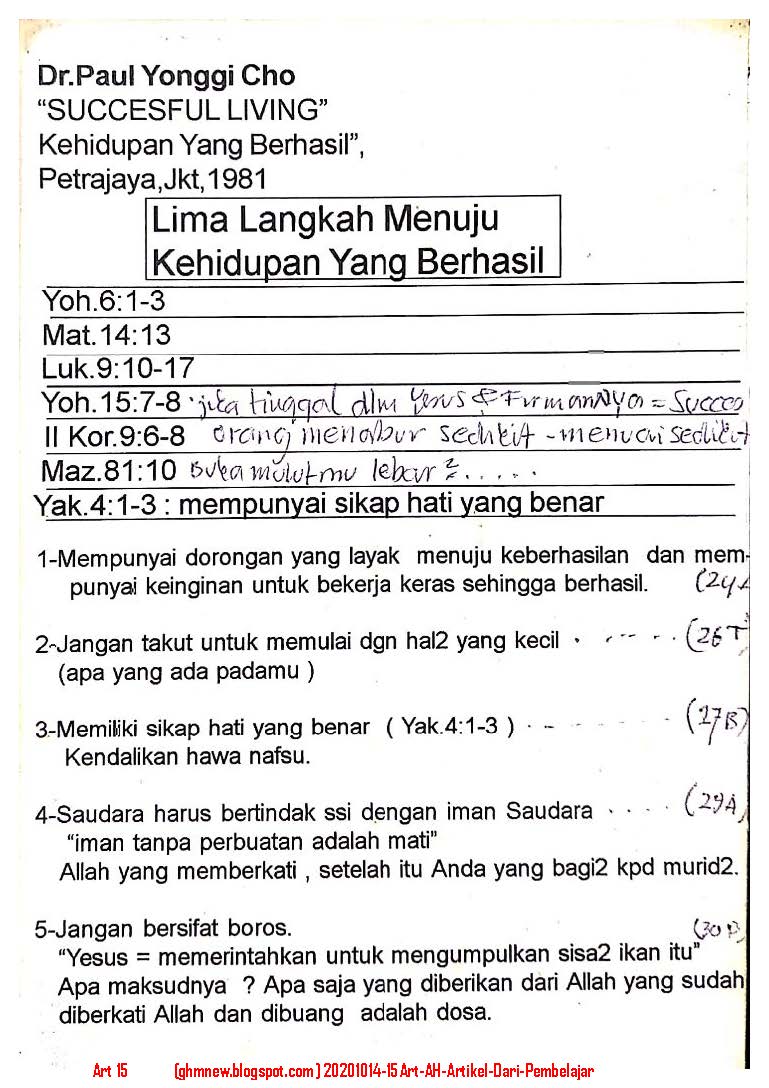 Dr.Paul Yonggi Cho
“SUCCESFUL LIVING”
Kehidupan Yang Berhasil”,
Petrajaya,Jkt,1981
Lima Langkah Menuju
Kehidupan Yang Berhasil
Yoh.6:1-3
Mat.14:13
Luk.9:10-17
Yoh.15:7-8 jika tinggal dlm Yesus & FirmanNya = Succes
II Kor.9:6-8 orang menabur sedikit - menuai sedikit
Maz.81:10 Buka mulutmu lebar2.....
Yak.4:1-3 : mempunyai sikap hati yang benar
1-Mempunyai dorongan yang layak menuju keberhasilan dan mem-
punyai keinginan untuk bekerja keras sehingga berhasil. (24A
2-Jangan takut untuk memulai dgn hal2 yang kecil . . - - - . (26T)
(apa yang ada padamu )
3-Memiliki sikap hati yang benar ( Yak.4:1-3 ) . - - - - - - (27B)
Kendalikan hawa nafsu.
4-Saudara harus bertindak ssi dengan iman Saudara . . . . (29A)
“iman tanpa perbuatan adalah mati”
Allah yang memberkati , setelah itu Anda yang bagi2 kpd murid2.
5-Jangan bersifat boros. (30B)
“Yesus = memerintahkan untuk mengumpulkan sisa2 ikan itu”
Apa maksudnya ? Apa saja yang diberikan dari Allah yang sudah
diberkati Allah dan dibuang adalah dosa.
Art 15 (ghmnew.blogspot.com ) 20201014-15 Art-AH-Artikel-Dari-Pembelajar